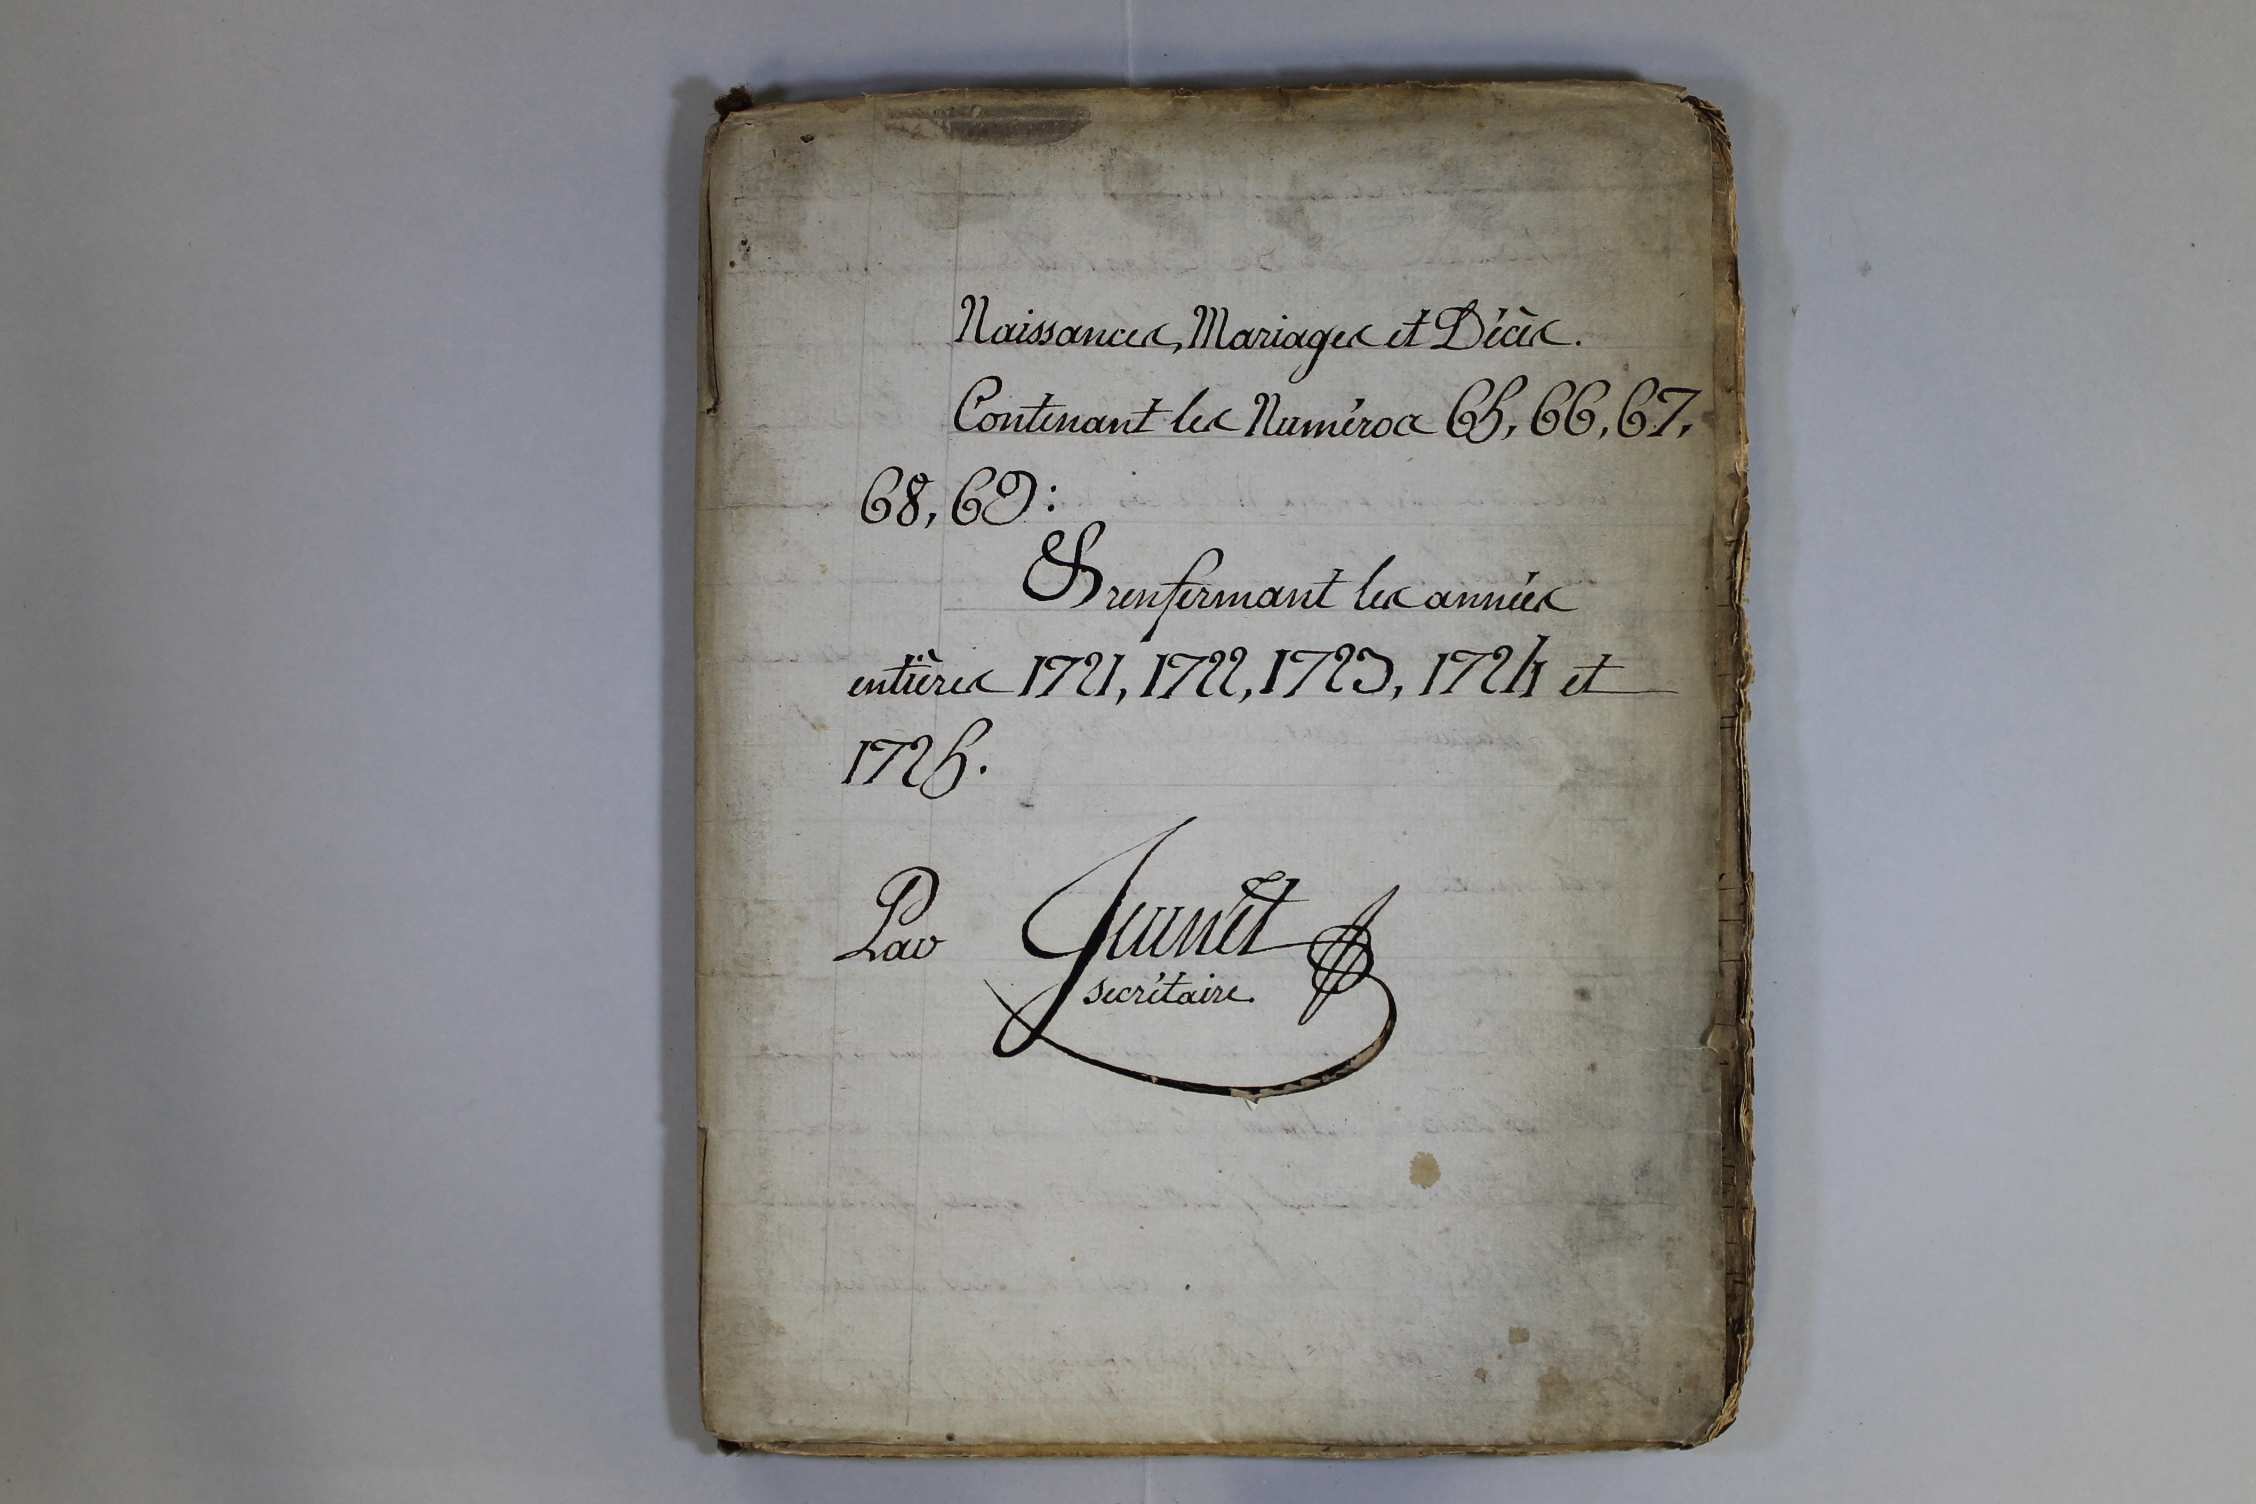 Naissances, Mariages et Décès.
Contenant les Numéros 65, 66, 67,
68, 69:
Et renfermant les années
entières 1721, 1722, 1723, 1724 et
1725.
Par
secrétaire.